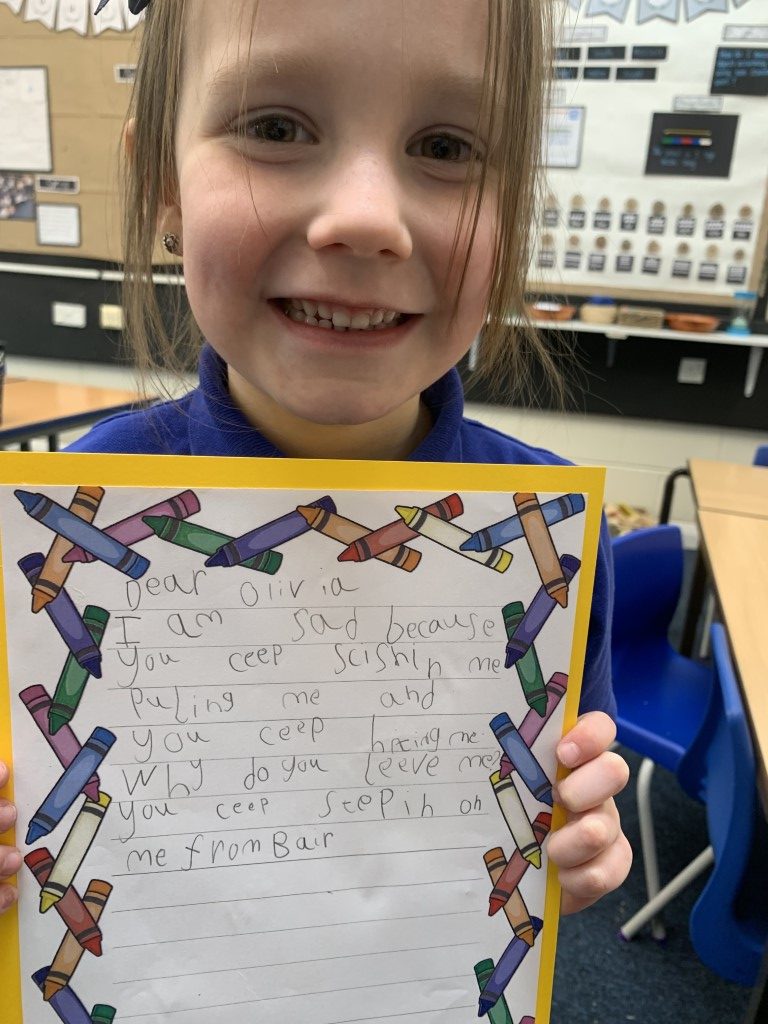 Dear Olivia
I am sad because
you ceep scishin me
puling me and
you ceep hreing me.
Why do you leeve me?
you ceep stepin on
me from Bair